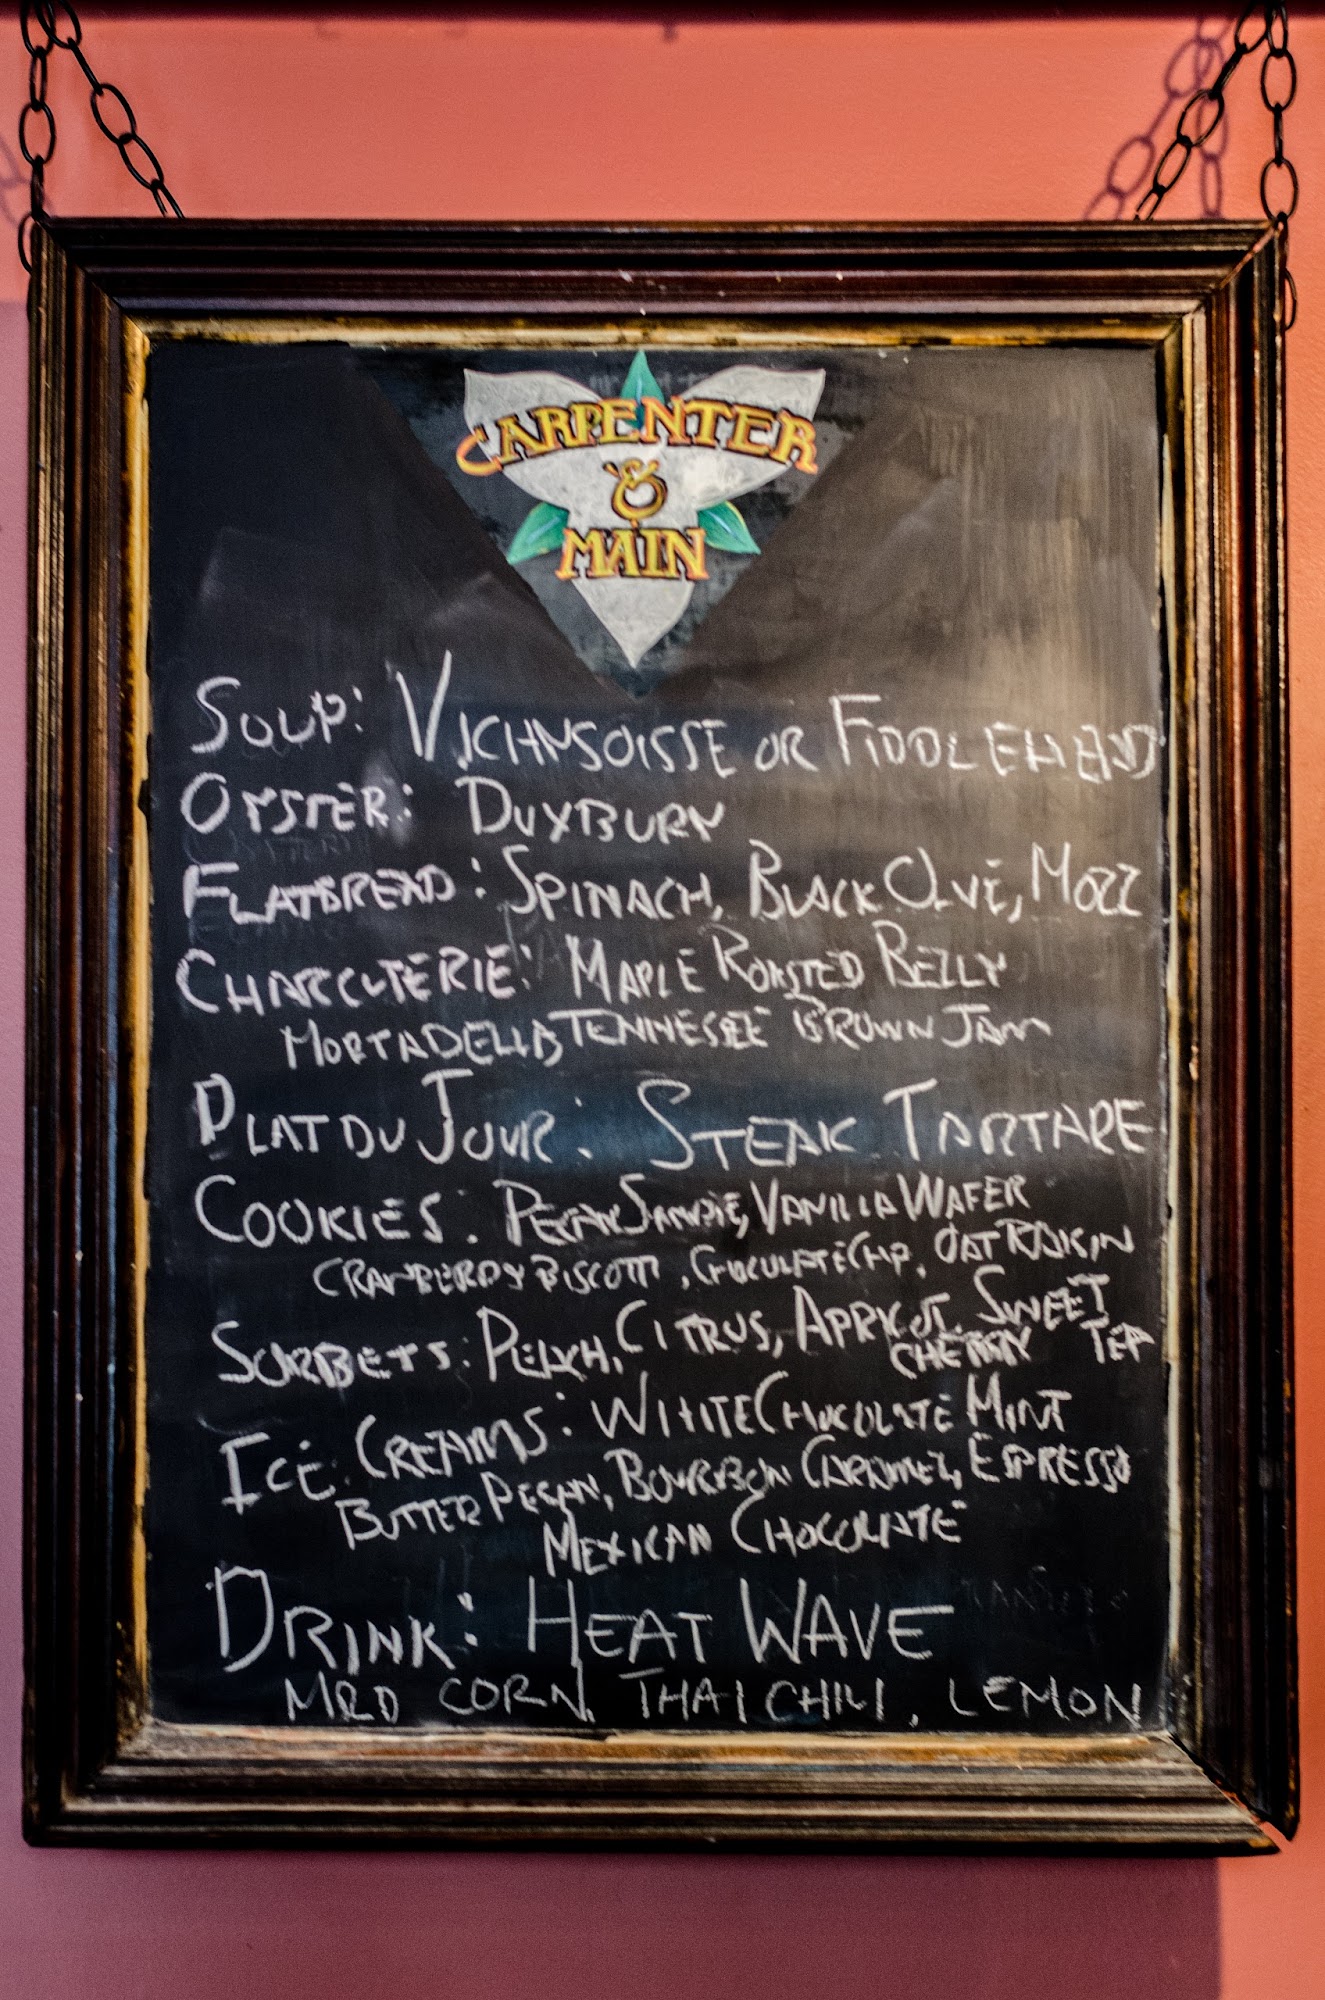 CARPENTER
&
MAIN
SOUP: VICHNSOISSE OR FIDDLEHEAD
OYSTER: DUXBURY
FLATBREAD: SPINACH, BLACK OLIVE, MOZZ
CHARCUTERIE: MAPLE ROASTED BELLY
MORTADELLA, TENNESSEE BROWN JAM
PLAT DU JOUR: STEAK TARTARE
COOKIES: PECAN SANDIE, VANILLA WAFER
CRANBERRY BISCOTTI, CHOCOLATE CHIP, OAT RAISIN
SORBETS: PEACH, CITRUS, APRICOT, SWEET
CHERRY TEA
ICE CREAMS: WHITE CHOCOLATE MINT
BUTTER PECAN, BOURBON CARAMEL, ESPRESSO
MEXICAN CHOCOLATE
DRINK: HEAT WAVE
CORN, THAI CHILI, LEMON